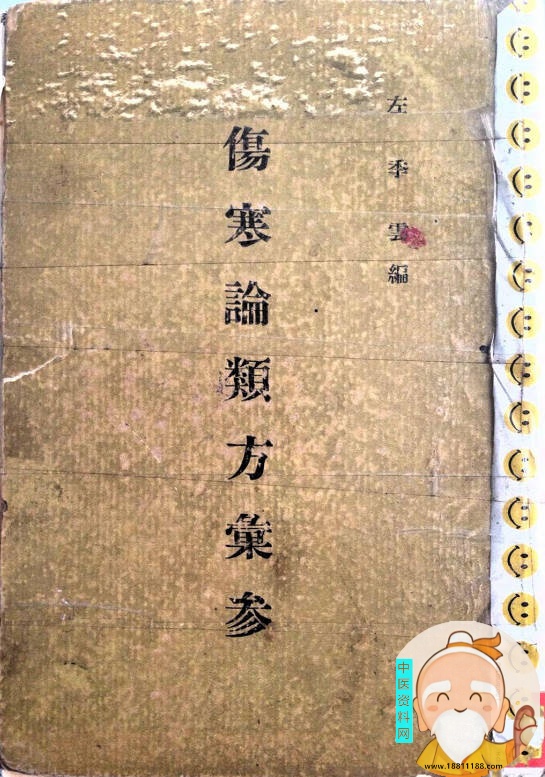 左季雲編
傷寒論類方彙参
中医资料网
www.18811188.com